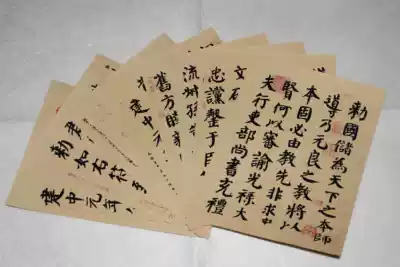 勅國儲為天下之本師
導乃元良之教將以
本固必由教先非求忠
賢何以審諭光祿大
夫行吏部尚書充禮
文
忠讜罄于臣
流
舊方時
建中元
勅如右符
建中元年